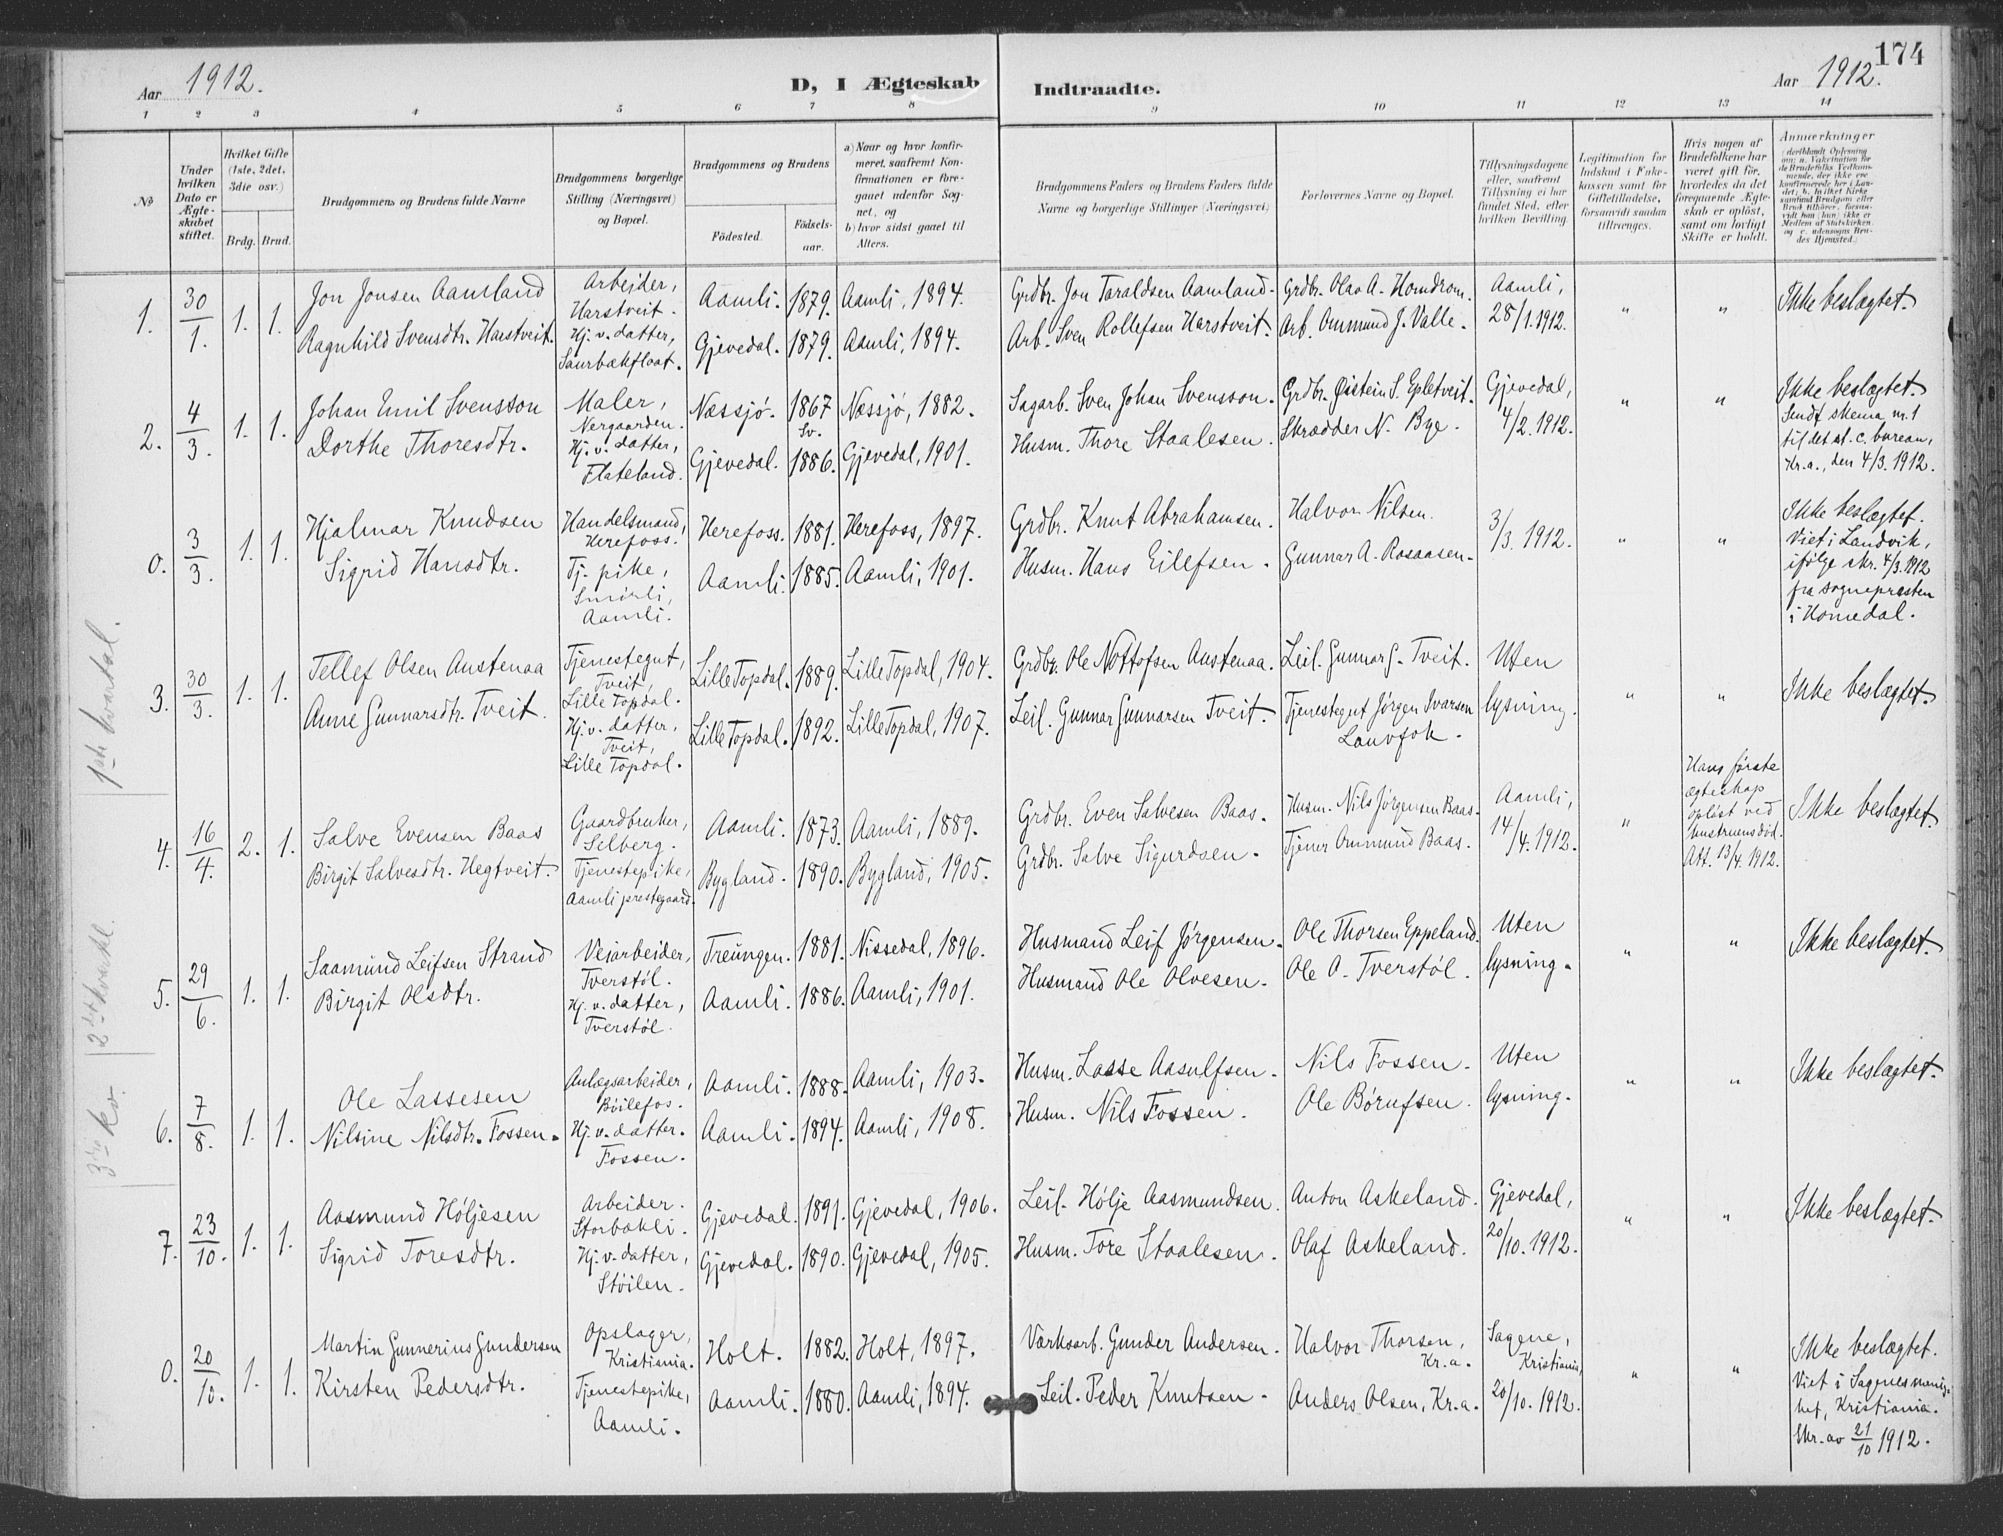 174
Aar 1912.
D, I Ægteskab Indtraadte.
Aar 1912.
1 2 3 4 5 6 7 8 9 10 11 12 13 14
No
Under hvilken Dato er Ægteskabet stiftet.
Hvilket Gifte (1ste, 2det, 3die osv.)
Brdg. Brud.
Brudgommens og Brudens fulde Navne
Brudgommens borgerlige Stilling (Næringsvei) og Bopæl.
Brudgommens og Brudens
Fødested. Fødselsaar.
a) Naar og hvor konfirmeret, saafremt Konfirmationen er foregaaet udenfor Sognet, og
b) hvor sidst gaaet til Alters.
Brudgommens Faders og Brudens Faders fulde Navne og borgerlige Stillinger (Næringsvei)
Forlovernes Navne og Bopæl.
Tillysningsdagene eller, saafremt Tillysning ei har fundet Sted, efter hvilken Bevilling.
Legitimation for Indskud i Enkekassen samt for Giftetilladelse, forsaavidt saadan tiltrænges.
Hvis nogen af Brudefolkene har været gift før, hvorledes da det foregaaende Ægteskab er opløst, samt om lovligt Skifte er holdt.
Anmærkninger
1ste kvartal.
2det kvartal.
3die kv.
1. 30/1. 1. 1.
Jon Jonsen Aamland
Ragnhild Svensdtr. Harstveit.
Arbeider,
Harstveit.
Hj. v. datter,
Saurbækfloat.
Aamli. 1879. Aamli, 1894.
Gjevedal. 1879. Aamli, 1894.
Grdbr. Jon Taraldsen Aamland.
Arb. Sven Rollefsen Harstveit.
Grdbr. Olav A. Homdrom.
Arb. Ommund J. Valle.
Aamli,
28/1. 1912.
" "
Ikke beslægtet.
2. 4/3. 1. 1.
Johan Emil Svensson
Dorthe Thoresdtr.
Maler,
Nergaarden.
Hj. v. datter,
Flateland.
Næssjö. 1867 Næssjö, 1882.
Sv.
Gjevedal. 1886. Gjevedal, 1901.
Sagarb. Sven Johan Svensson.
Husm. Thore Staalesen.
Grdbr. Øistein S. Epletveit.
Skrædder N. Bye.
Gjevedal,
4/2. 1912.
" "
Ikke beslægtet.
Sendt skema nr. 1
til det st. c. bureau,
Kr.a., den 4/3. 1912.
0. 3/3. 1. 1.
Hjalmar Knudsen
Sigrid Hansdtr.
Handelsmand,
Herefoss.
Tj. pike,
Smörli,
Aamli.
Herefoss. 1881. Herefoss, 1897.
Aamli. 1885. Aamli, 1901.
Grdbr. Knut Abrahamsen.
Husm. Hans Eilefsen.
Halvor Nilsen.
Gunnar A. Rosaasen.
3/3. 1912.
" "
Ikke beslægtet.
Viet i Landvik,
ifølge skr. 4/3. 1912
fra sognepresten
i Homedal.
3. 30/3. 1. 1.
Tellef Olsen Austenaa
Anne Gunnarsdtr. Tveit.
Tjenestegut,
Tveit,
Lille Topdal.
Hj. v. datter,
Tveit,
Lille Topdal.
Lille Topdal. 1889. Lille Topdal, 1904.
Lille Topdal. 1892. Lille Topdal, 1907.
Grdbr. Ole Nottofsen Austenaa.
Leil. Gunnar Gunnarsen Tveit.
Leil. Gunnar G. Tveit.
Tjenestegut Jørgen Ivarsen
Lauvfok.
Uten
lysning.
" "
Ikke beslægtet.
4. 16/4. 2. 1.
Salve Evensen Baas
Birgit Salvesdtr. Hegtveit.
Gaardbruker,
Selberg.
Tjenestepike,
Aamli prestegaard.
Aamli. 1873. Aamli, 1889.
Bygland. 1890. Bygland, 1905.
Grdbr. Even Salvesen Baas.
Grdbr. Salve Sigurdsen.
Husm. Nils Jørgensen Baas.
Tjener Ommund Baas.
Aamli,
14/4. 1912.
"
Hans første
ægteskap
opløst ved
hustruens død.
Att. 13/4. 1912.
Ikke beslægtet.
5. 29/6. 1. 1.
Saamund Leifsen Strand
Birgit Olsdtr.
Veiarbeider,
Tverstøl.
Hj. v. datter,
Tverstøl.
Treungen. 1881. Nissedal, 1896.
Aamli. 1886. Aamli, 1901.
Husmand Leif Jørgensen.
Husmand Ole Olvesen.
Ole Thorsen Eppeland.
Ole A. Tverstøl.
Uten
lysning.
" "
Ikke beslægtet.
6. 7/8. 1. 1.
Ole Lassesen
Nilsine Nilsdtr. Fossen.
Anlægsarbeider,
Bøilefos.
Hj. v. datter.
Fossen.
Aamli. 1888. Aamli, 1903.
Aamli. 1894. Aamli, 1908.
Husm. Lasse Aasulfsen.
Husm. Nils Fossen.
Nils Fossen.
Ole Børufsen.
Uten
lysning.
" "
Ikke beslægtet.
7. 23/10. 1. 1.
Aasmund Höljesen
Sigrid Toresdtr.
Arbeider.
Storbakli.
Hj. v. datter,
Støilen.
Gjevedal. 1891. Gjevedal, 1906.
Gjevedal. 1890. Gjevedal, 1905.
Leil. Hölje Aasmundsen.
Husm. Tore Staalesen.
Anton Askeland.
Olaf Askeland.
Gjevedal,
20/10. 1912.
" "
Ikke beslægtet.
0. 20/10. 1. 1.
Martin Gunnerius Gundersen
Kirsten Pedersdtr.
Opslager,
Kristiania.
Tjenestepike,
Aamli.
Holt. 1882. Holt, 1897.
Aamli. 1880. Aamli, 1894.
Værksarb. Gunder Andersen.
Leil. Peder Knutsen.
Halvor Thorsen,
Kr.a.
Anders Olsen, Kr.a.
Sagene,
Kristiania,
20/10. 1912.
" "
Ikke beslægtet.
Viet i Sagenes menig-
het, Kristiania.
Skr. av 21/10 1912.